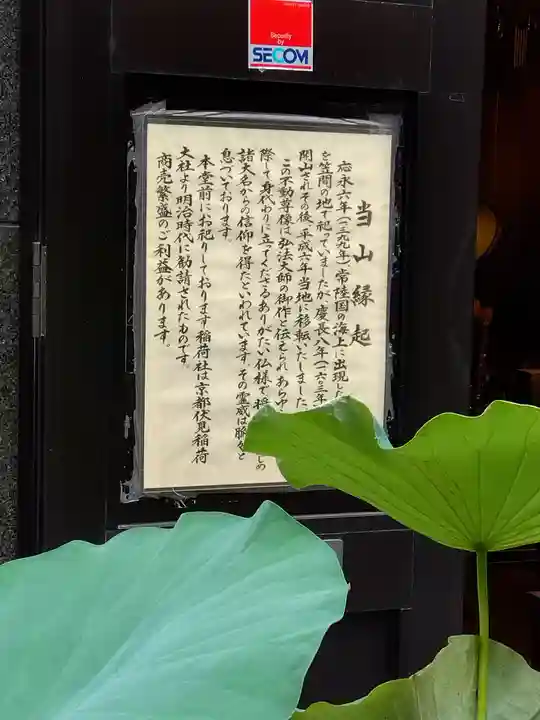 Security by
SECOM
当山縁起
応永六年(一三九九年)常陸国の海上に出現した
を笠間の地で祀っていましたが、慶長八年(一六〇三年
開山されその後、平成六年当地に移転いたしました
この不動尊像は弘法大師の御作と伝えられ、あらゆ
際して身代わりに立てくださるありがたい仏様で、
諸大名からの信仰を得たといわれています。その霊威は脈々と
息づいております。
本堂前にお祀りしております稲荷社は京都伏見稲荷
大社より明治時代に勧請されたものです。
商売繁盛のご利益があります。